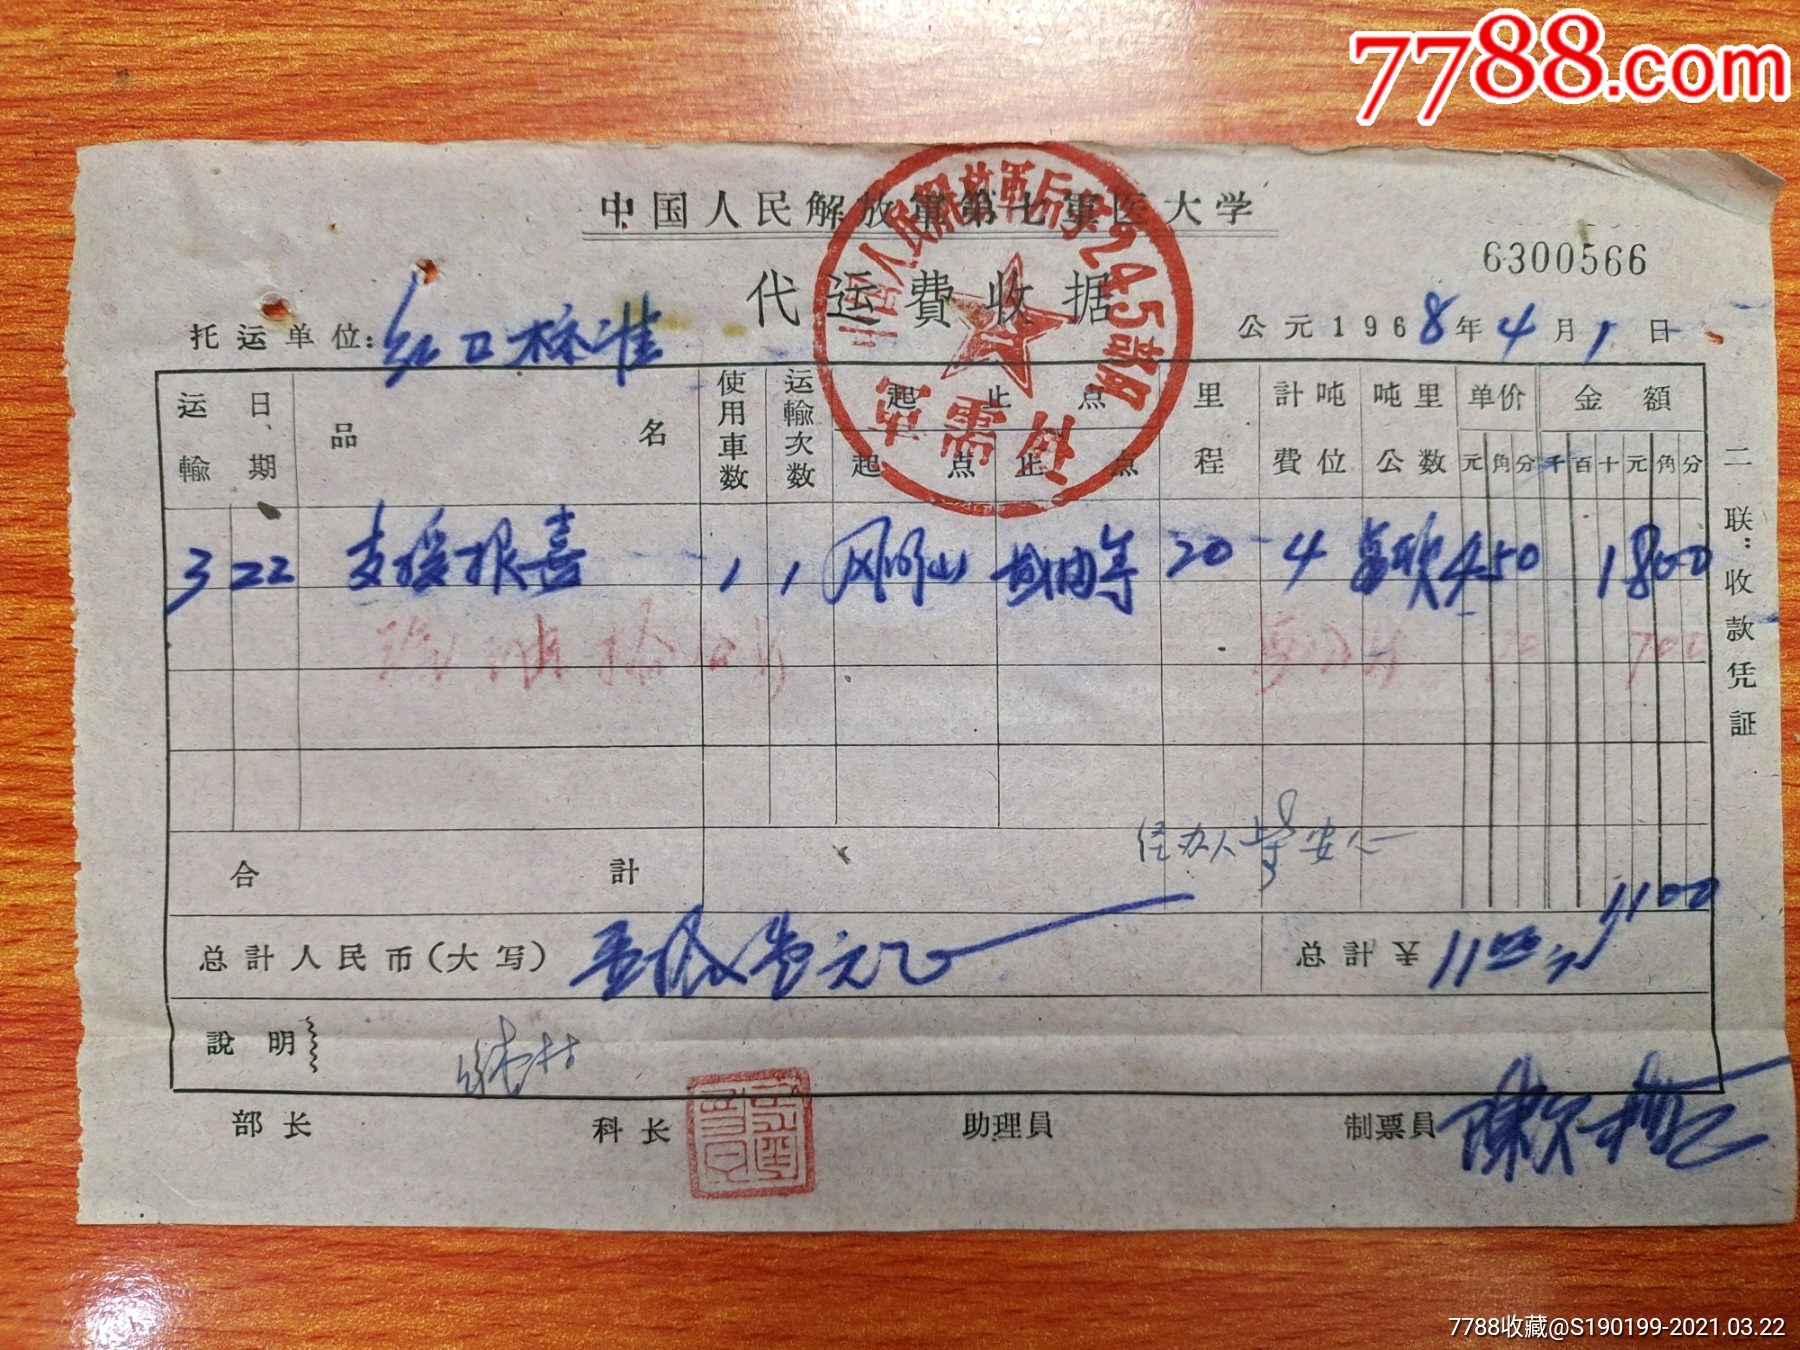 7788.com
中国人民解放軍第七軍医大学
6300566
代运費收据
托运单位:
公元1968年4月1日
运輸 日期 品名 使用車数 运輸次数 起止点 里程 計費吨位 吨公里数 单价 金額
起点 止点 元角分 千百十元角分
3 22 支援 1 1 20 4 450 1800
700
合計 1100
经办人
总計人民币(大写) 壹拾壹元 总計¥ 1100
說明
部长 科长 助理員 制票員
二联:收款凭証
中国人民解放軍后字245部队
軍需处
7788收藏@S190199-2021.03.22